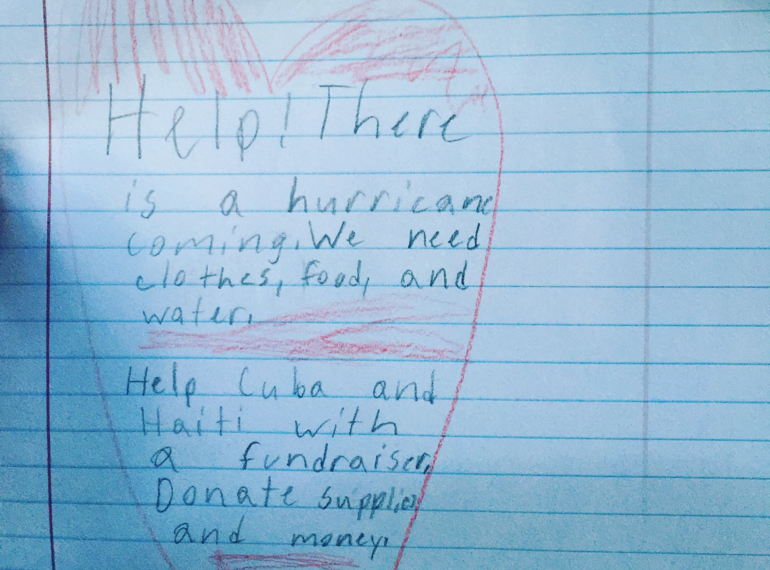 Help! There
is a hurricane
coming. We need
clothes, food, and
water.
Help Cuba and
Haiti with
a fundraiser.
Donate supplies
and money.